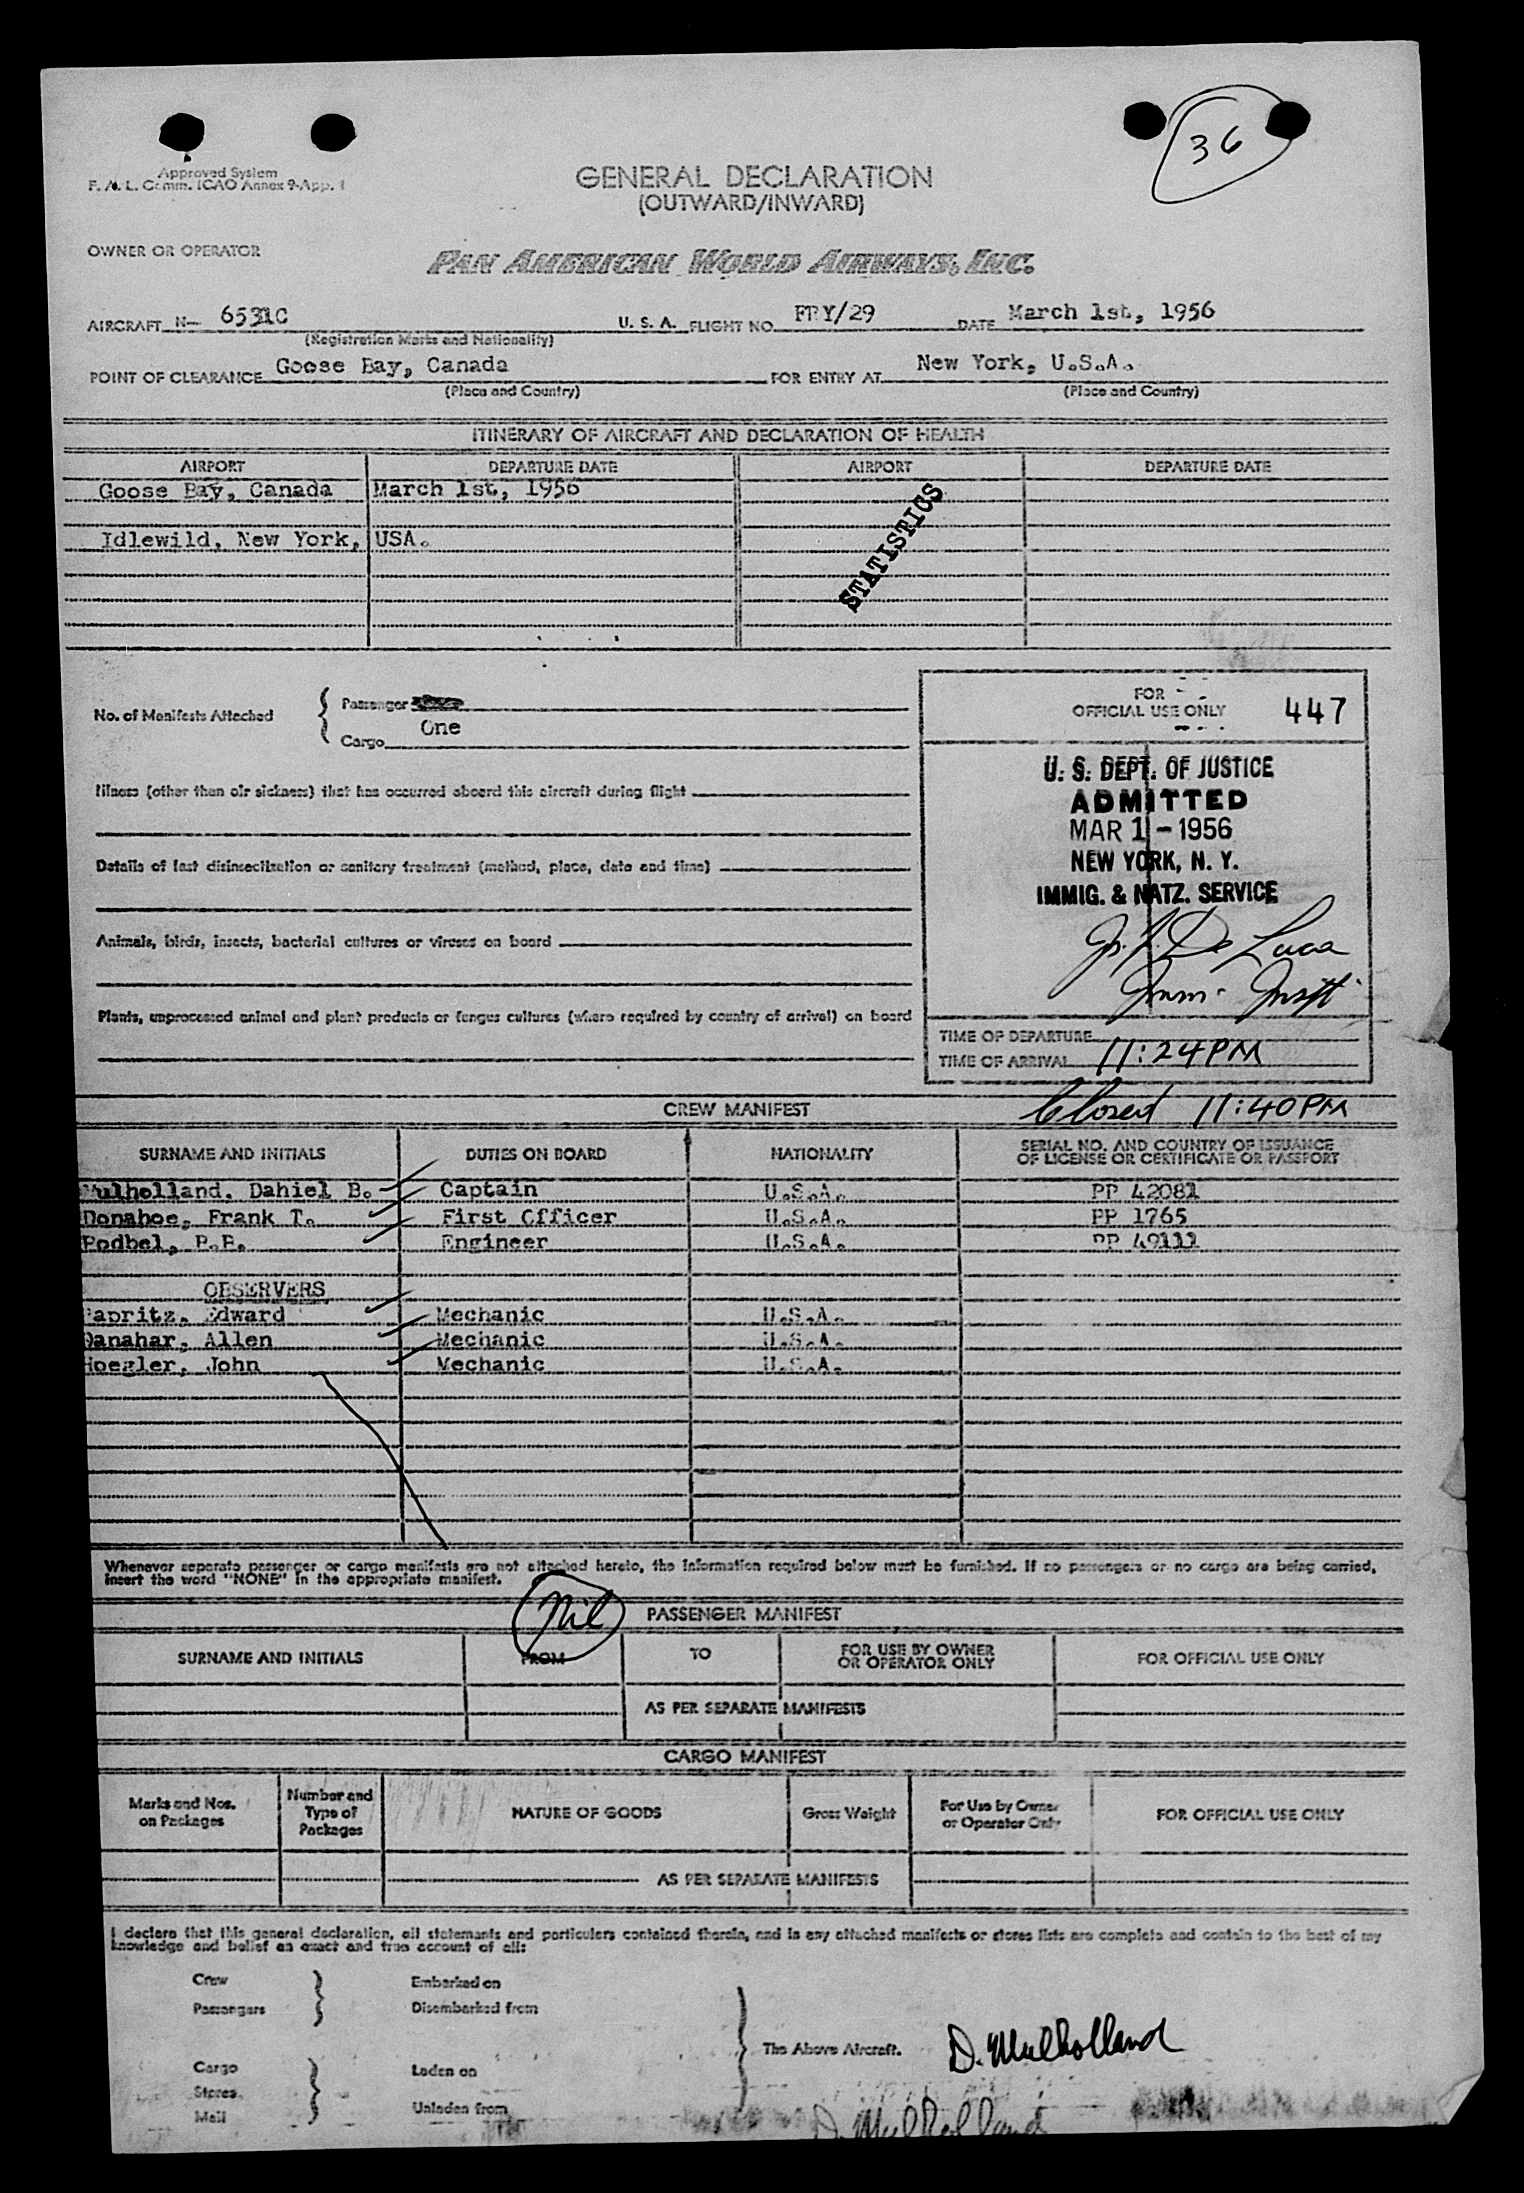 36
Approved System
F. A. L. Comm. ICAO Annex 9-App. 1
GENERAL DECLARATION
(OUTWARD/INWARD)
OWNER OR OPERATOR
PAN AMERICAN WORLD AIRWAYS, INC.
AIRCRAFT N- 6531C U. S. A. FLIGHT NO. FRY/29 DATE March 1st, 1956
(Registration Marks and Nationality)
POINT OF CLEARANCE Goose Bay, Canada FOR ENTRY AT New York, U.S.A.
(Place and Country) (Place and Country)
ITINERARY OF AIRCRAFT AND DECLARATION OF HEALTH
AIRPORT DEPARTURE DATE AIRPORT DEPARTURE DATE
Goose Bay, Canada March 1st, 1956
STATISTICS
Idlewild, New York, USA.
No. of Manifests Attached
Passenger
Cargo One
FOR
OFFICIAL USE ONLY 447
U. S. DEPT. OF JUSTICE
ADMITTED
MAR 1 - 1956
NEW YORK, N. Y.
IMMIG. & NATZ. SERVICE
De Luca
Imm.
Illness (other than air sickness) that has occurred aboard this aircraft during flight
Details of last disinsectization or sanitary treatment (method, place, date and time)
Animals, birds, insects, bacterial cultures or viruses on board
Plants, unprocessed animal and plant products or fungus cultures (where required by country of arrival) on board
TIME OF DEPARTURE
TIME OF ARRIVAL 11:24 PM
Closed 11:40 PM
CREW MANIFEST
SURNAME AND INITIALS DUTIES ON BOARD NATIONALITY SERIAL NO. AND COUNTRY OF ISSUANCE
OF LICENSE OR CERTIFICATE OR PASSPORT
Mulholland, Dahiel B. Captain U.S.A. PP 42081
Donahoe, Frank T. First Officer U.S.A. PP 1765
Podbel, P.P. Engineer U.S.A. PP 49111
OBSERVERS
Papritz, Edward Mechanic U.S.A.
Danahar, Allen Mechanic U.S.A.
Hoegler, John Mechanic U.S.A.
Whenever separate passenger or cargo manifests are not attached hereto, the information required below must be furnished. If no passengers or no cargo are being carried,
insert the word "NONE" in the appropriate manifest.
Nil
PASSENGER MANIFEST
SURNAME AND INITIALS FROM TO FOR USE BY OWNER
OR OPERATOR ONLY FOR OFFICIAL USE ONLY
AS PER SEPARATE MANIFESTS
CARGO MANIFEST
Marks and Nos.
on Packages Number and
Type of
Packages NATURE OF GOODS Gross Weight For Use by Owner
or Operator Only FOR OFFICIAL USE ONLY
AS PER SEPARATE MANIFESTS
I declare that this general declaration, all statements and particulars contained therein, and in any attached manifests or stores lists are complete and contain to the best of my
knowledge and belief an exact and true account of all:
Crew Embarked on
Passengers Disembarked from
The Above Aircraft. D. Mulholland
Cargo Laden on
Stores
Mail Unladen from
D. Mulholland